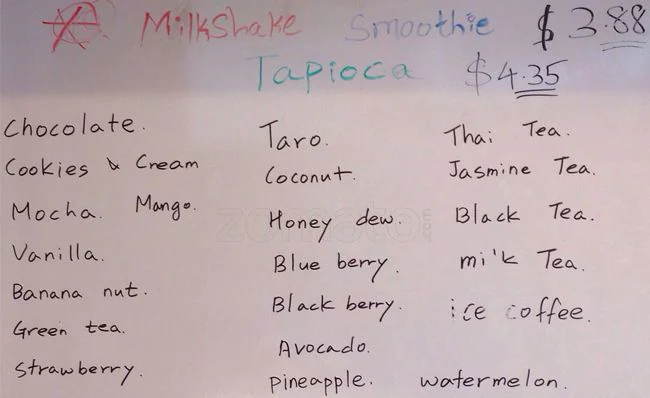 MilkShake Smoothie $ 3.88
Tapioca $ 4.35
Chocolate.
Cookies & Cream
Mocha. Mango.
Vanilla.
Banana nut.
Green tea.
Strawberry.
Taro.
Coconut.
Honey dew.
Blue berry.
Black berry.
Avocado.
Pineapple.
Thai Tea.
Jasmine Tea.
Black Tea.
milk Tea.
ice coffee.
watermelon.
zomato.com